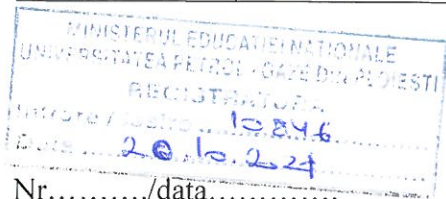 MINISTERUL EDUCATIEI NATIONALE
UNIVERSITATEA PETROL - GAZE DIN PLOIESTI
REGISTRATURA
Intrare / Iesire ..10846
Data
Nr........../data.............